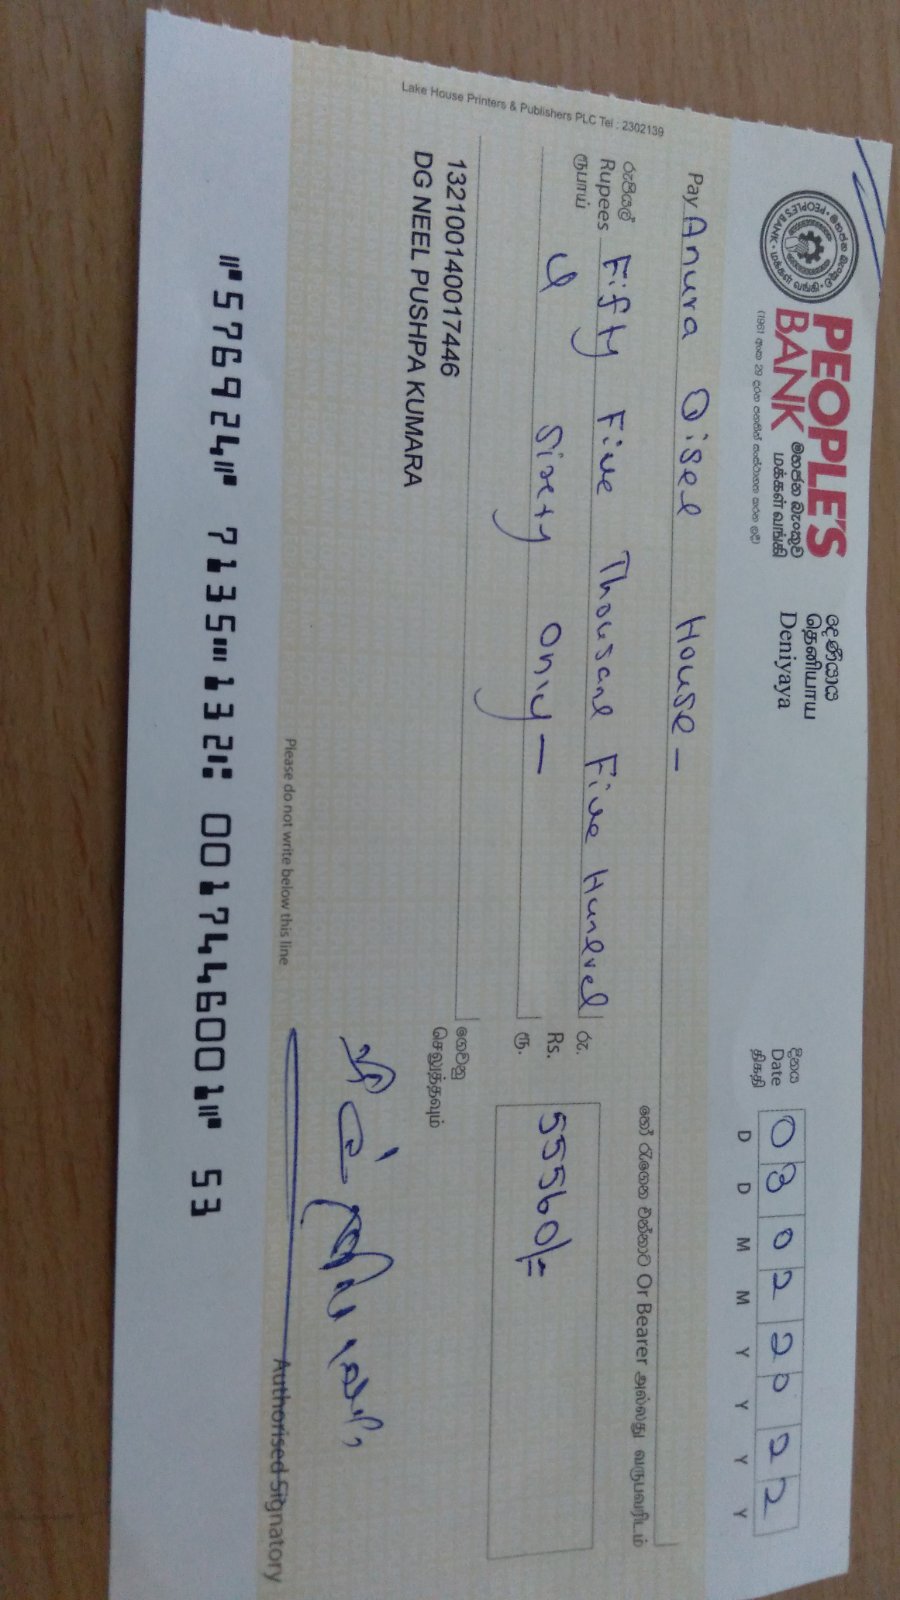 PEOPLE'S
BANK
මහජන බැංකුව
மக்கள் வங்கி
දෙණියාය
தெனியாய
Deniyaya
දිනය
Date
திகதி
0 3 0 2 2 0 2 2
D D M M Y Y Y Y
Pay Anura Oisel House –
හෝ රැගෙන එන්නාට Or Bearer அல்லது வருபவரிடம்
රුපියල්
Rupees Fifty Five Thousand Five Hundred
ரூபாய்
& Sixty Only –
රු.
Rs. 55560/=
ரூ.
ගෙවනු
செலுத்தவும்
132100140017446
DG NEEL PUSHPA KUMARA
Authorised Signatory
Please do not write below this line
⑈576924⑈ 7135⑉132⑆ 0017446001⑈ 53
Lake House Printers & Publishers PLC Tel : 2302139